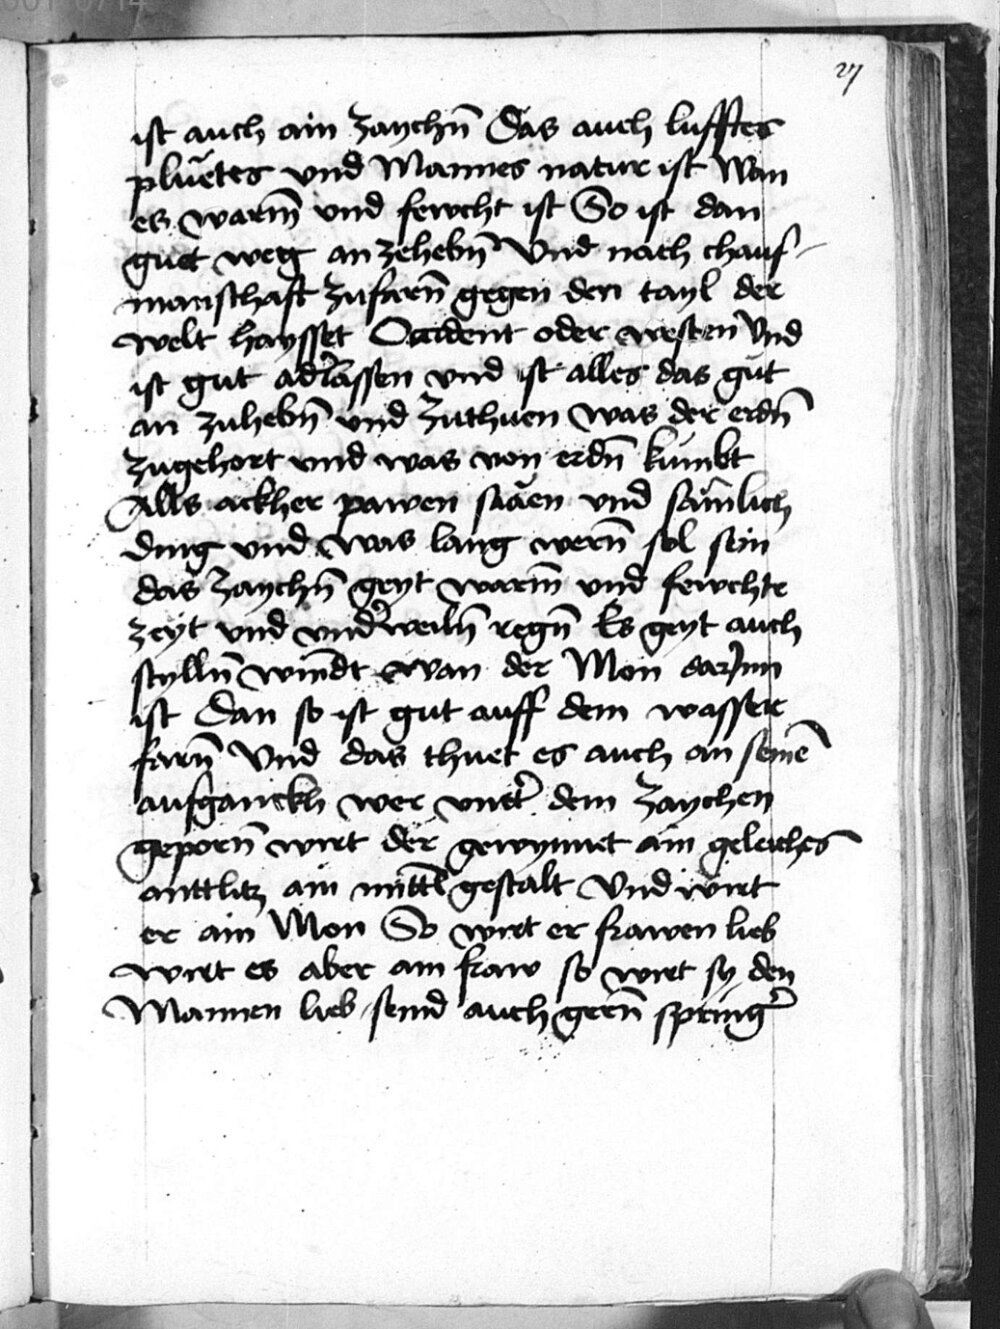 27
ist auch ain zaychn̄ Das auch lufftes
pluetes vnd Mannes natur ist Wan
es warm̄ vnd fewcht ist So ist dan
guet weg an zehebn̄ Vnd nach chauf-
manschaft zufarn̄ gegen den tayl der
welt haysset Occident oder westen Vnd
ist gut adlassen vnd ist alles das gut
an zuhebn̄ vnd zuthuen was der erdn̄
zugehort vnd was von erdn̄ kumbt
Alls ackher pawen säen vnd sämlich
ding vnd was lang wern̄ sol sein
das zaychn̄ geyt warm̄ vnd fewchte
zeyt vnd vndˀweiln̄ regn̄ Es geyt auch
stylln̄ windt wan der Mon darJnn
ist Dan so ist gut auff dem wasser
farn̄ Vnd das thuet es auch an seinē
aufganckh wer vnttˀ dem zaychen
geporn̄ wirt der gewynnet ain geleiches
anttlitz ain mittl gestalt Vnd wirt
er ain Mon So wirt er frawen lieb
wirt es aber ain fraw so wirt sy den
Mannen lieb seind auch gern̄ springˀ